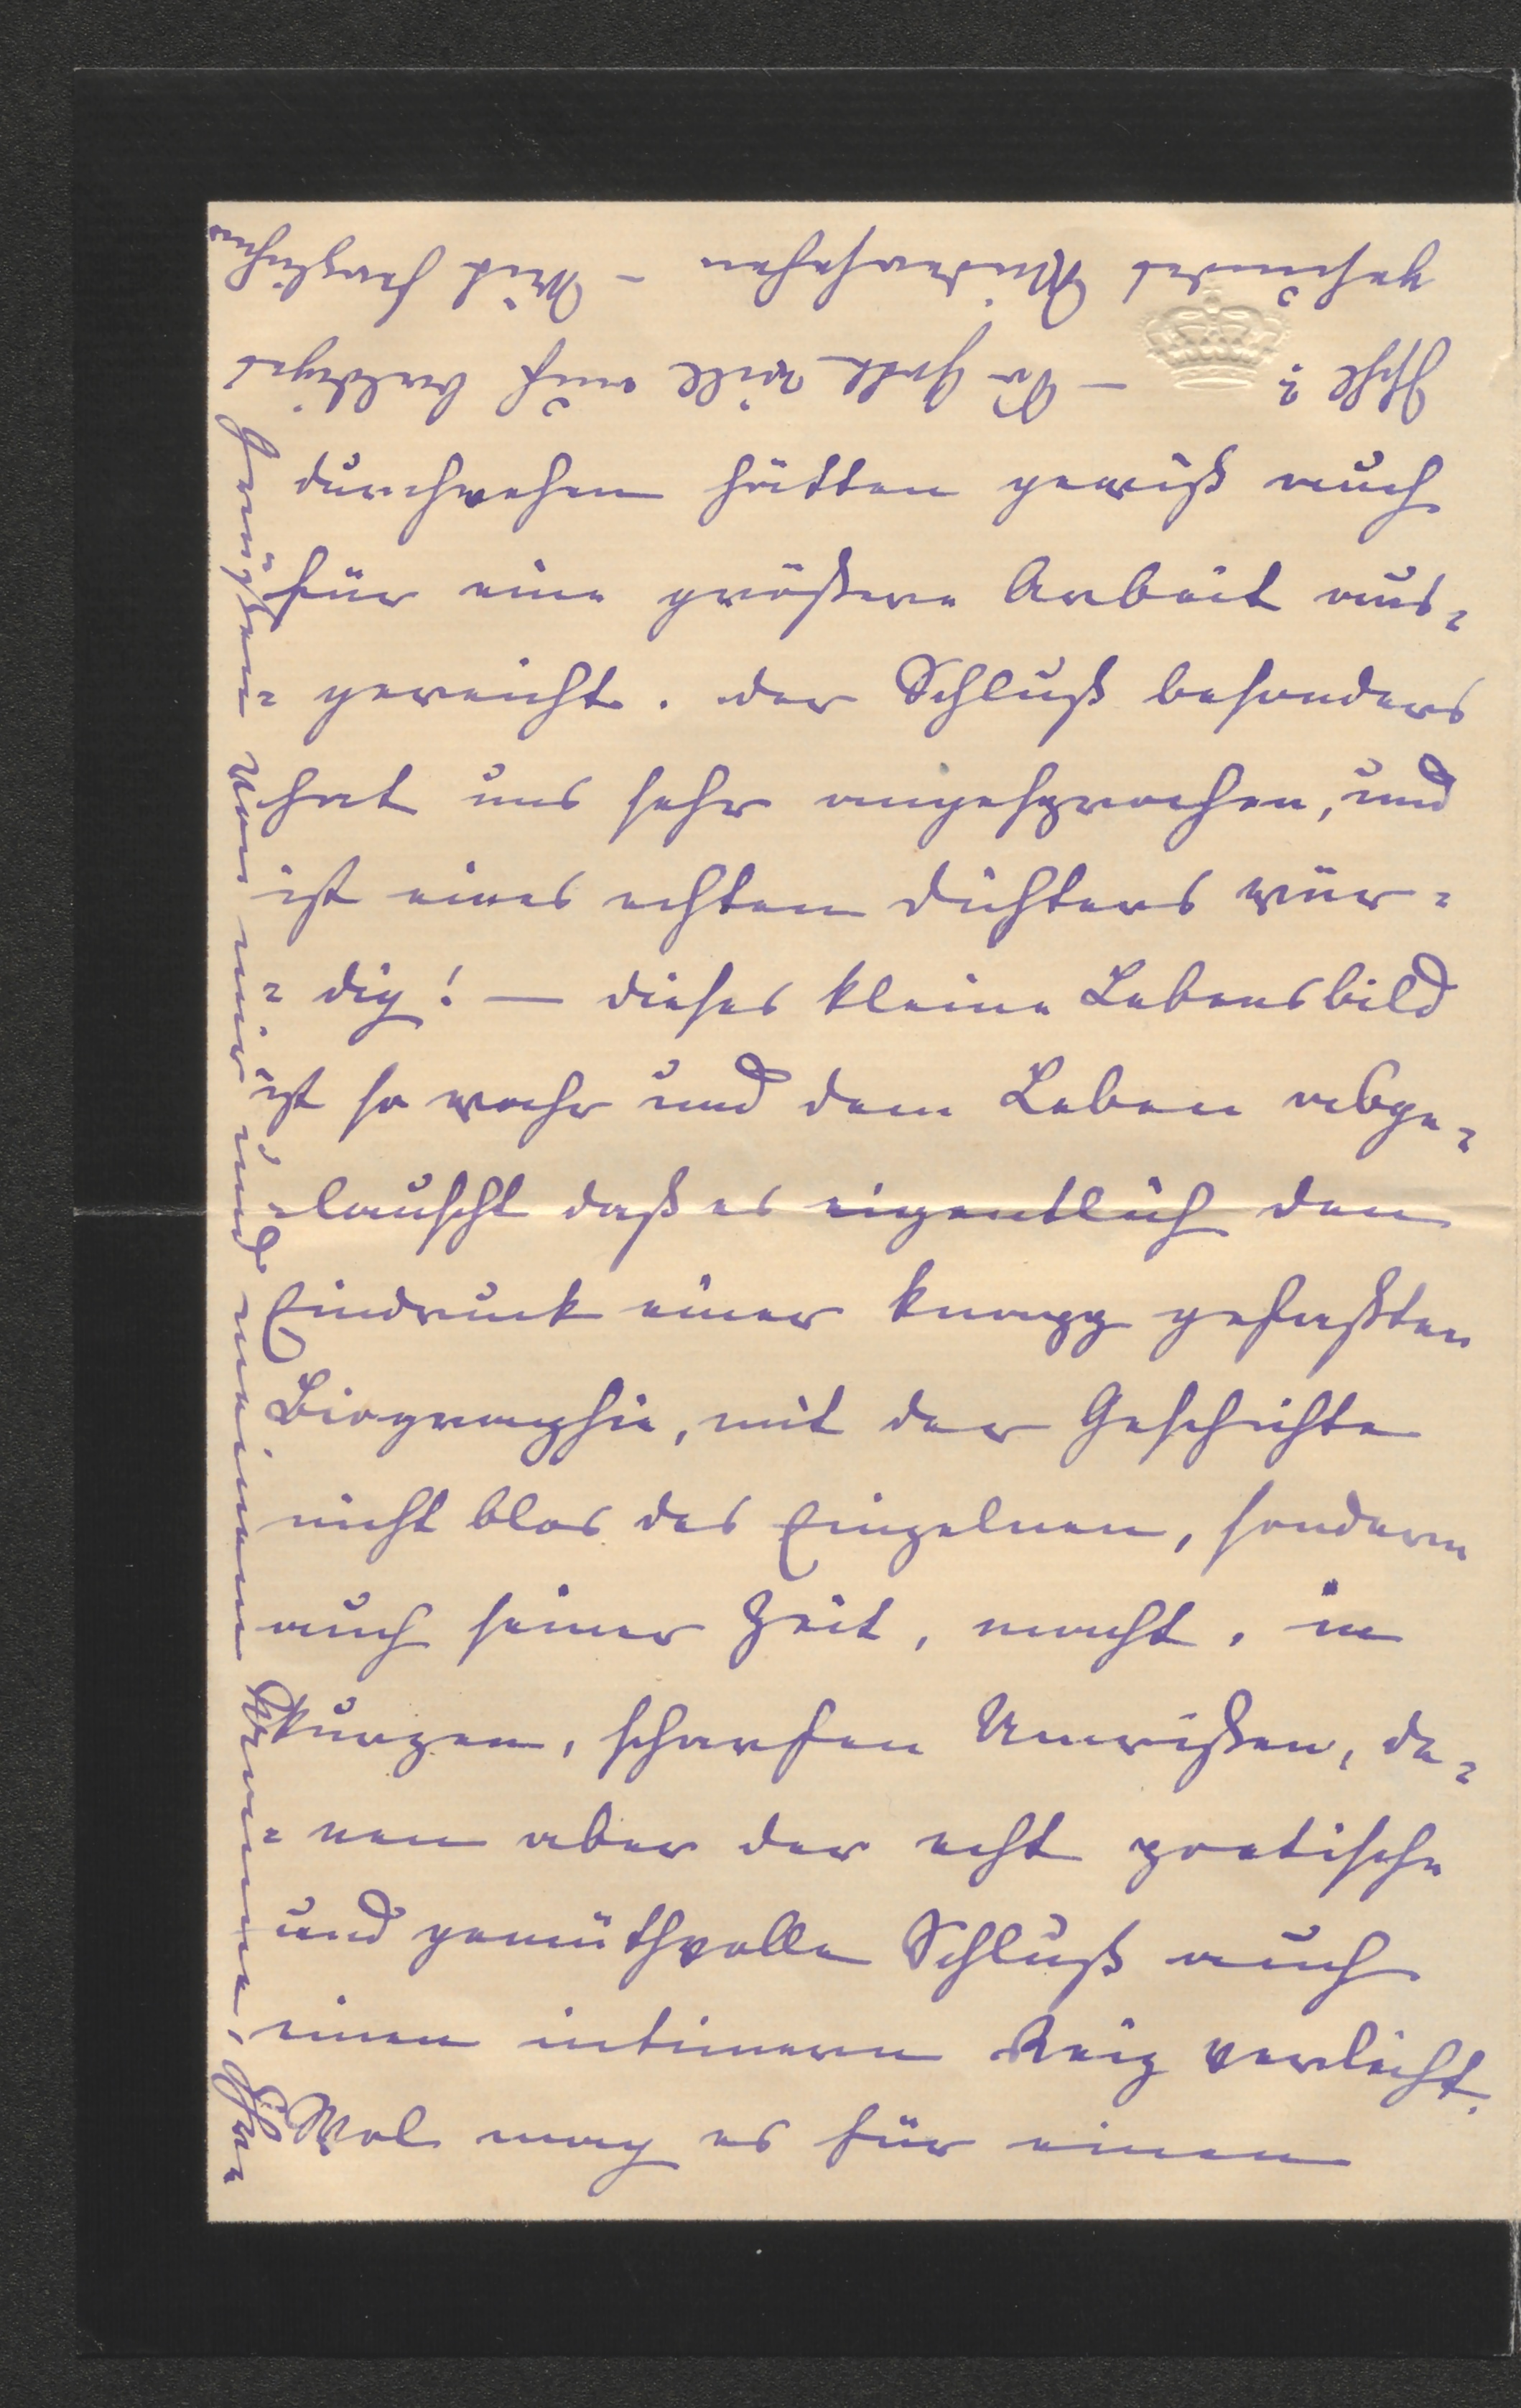 durchwehen hätten gewiß auch
für eine größere Arbeit aus=
=gereicht. der Schluß besonders
hat uns sehr angesprochen, und
ist eines echten Dichters wür=
=dig! — dieses kleine Lebensbild
ist so wahr und dem Leben abge=
=lauscht daß es eigentlich den
Eindruck einer knapp gefaßten
Biographie, mit der Geschichte
nicht blos des Einzelnen, sondern
auch seiner Zeit, macht, in
kurzen, scharfen Umrißen, de=
=nen aber der echt poetische
und gemüthvolle Schluß auch
einen intimern Reiz verleiht.
Wol mag es für einen
Ischl? — So Gott will auf baldiges
Wiedersehen — Mit herzlichen
Grüßen von mir und meinem Manne, Ihre